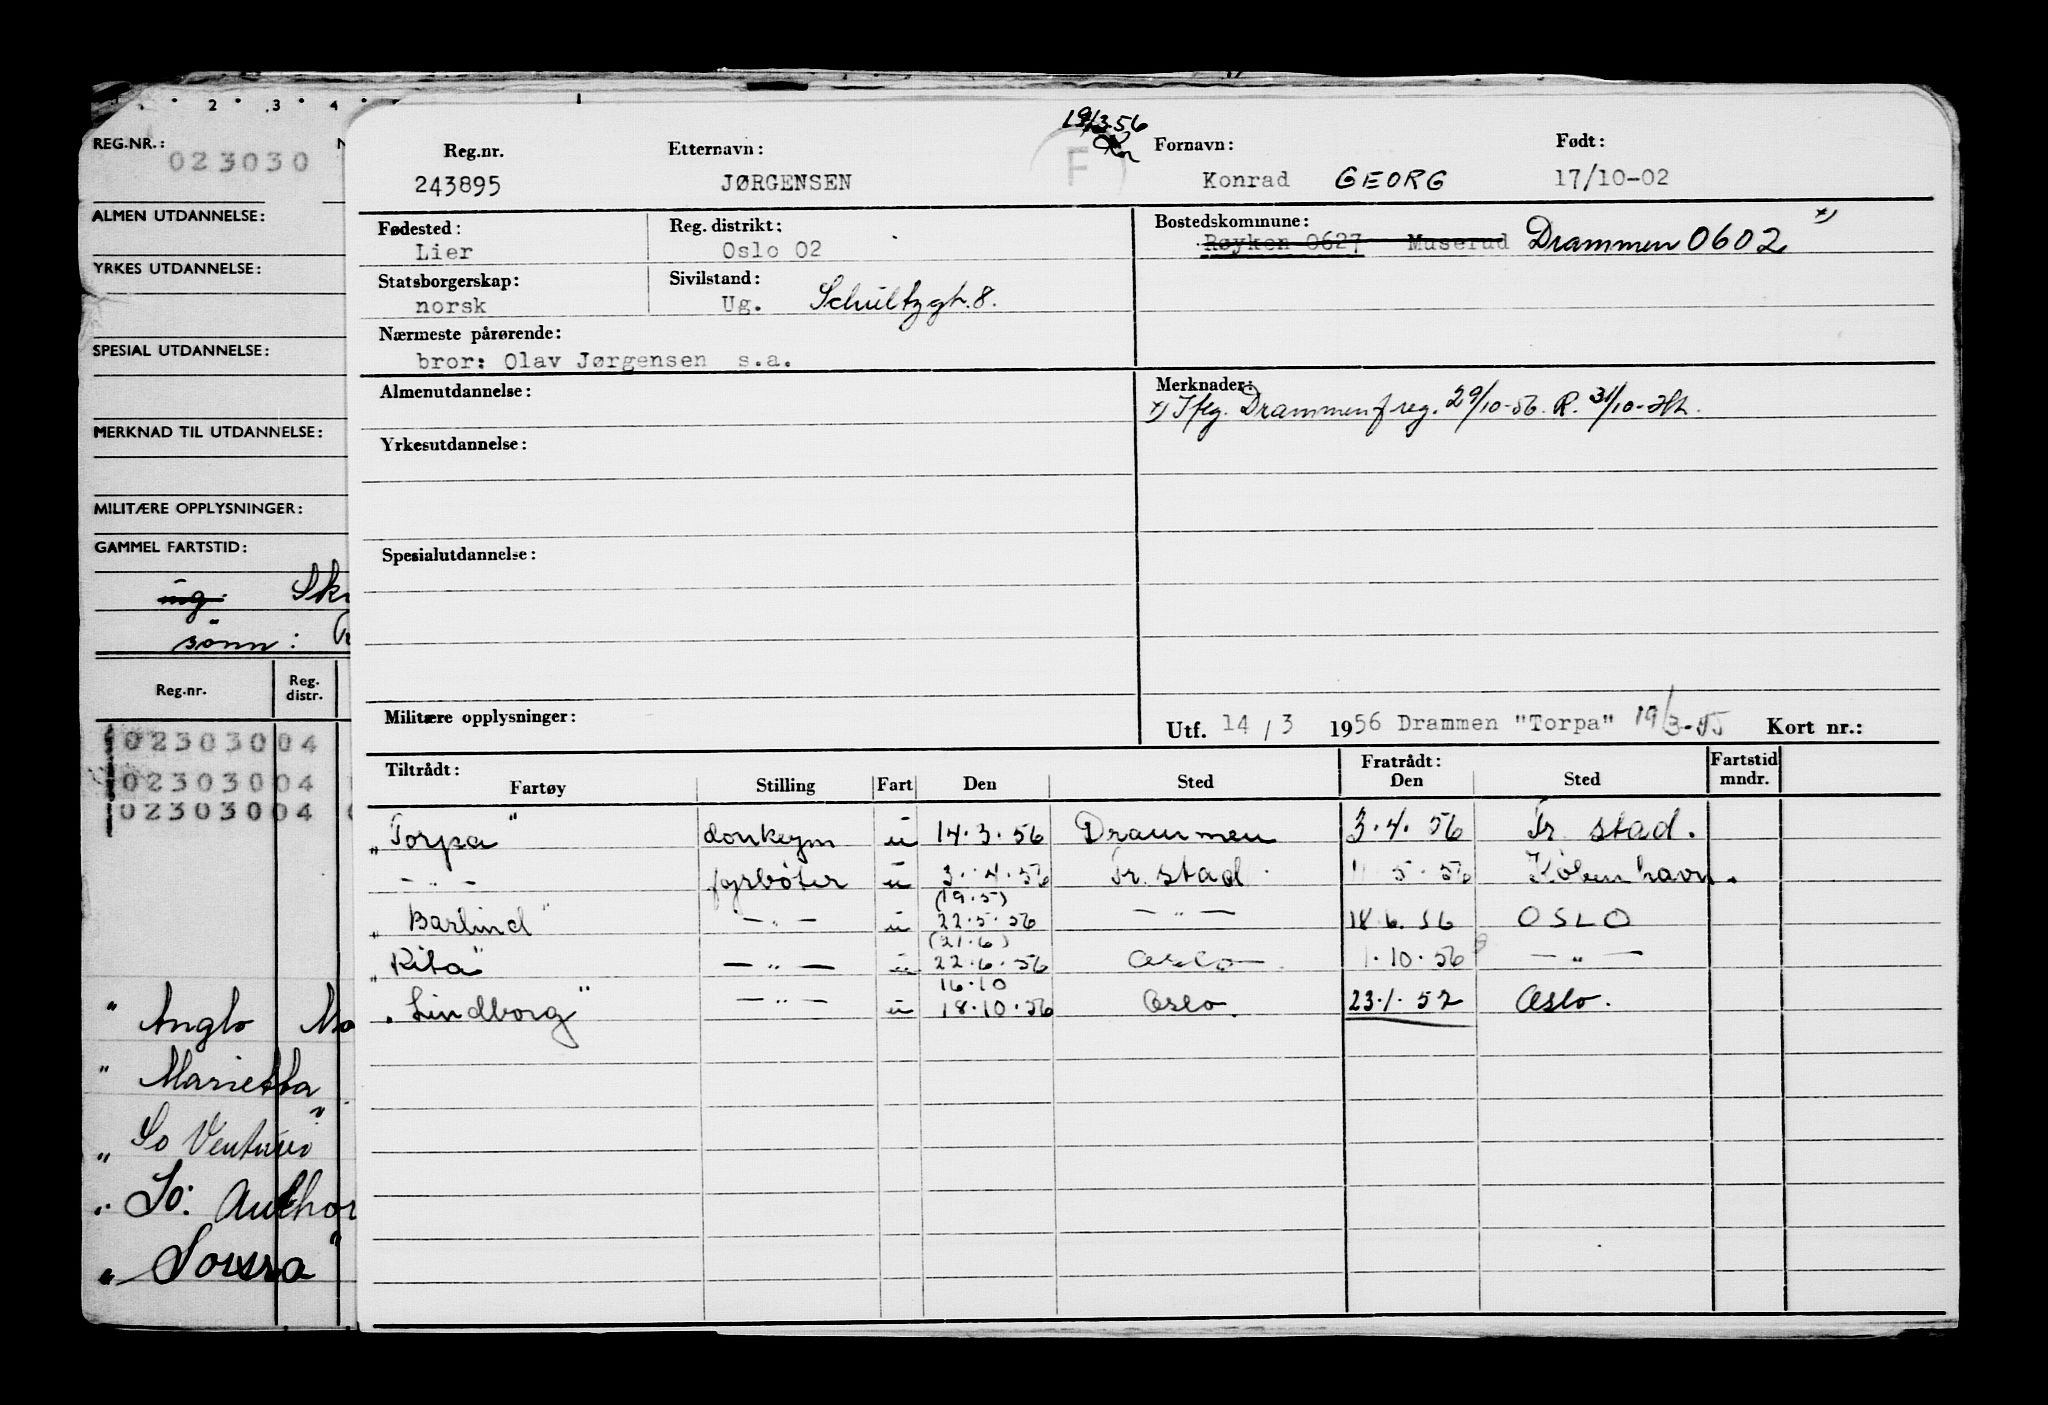 2 3 4
REG.NR.:
023030
ALMEN UTDANNELSE:
YRKES UTDANNELSE:
SPESIAL UTDANNELSE:
MERKNAD TIL UTDANNELSE:
MILITÆRE OPPLYSNINGER:
GAMMEL FARTSTID:
ug. Sk
sønn:
Reg.nr. Reg. distr.
02303004
02303004
02303004
" Anglo
" Marietta
" So Venturo"
" So: Author
" Sousra"
19/3-56
Reg.nr. Etternavn: F Fornavn: Født:
243895 JØRGENSEN Konrad GEORG 17/10-02
Fødested: Reg. distrikt: Bostedskommune:
Lier Oslo 02 Røyken 0627 Muserud Drammen 0602 x)
Statsborgerskap: Sivilstand:
norsk Ug. Schultzgt. 8.
Nærmeste pårørende:
bror: Olav Jørgensen s.a.
Almenutdannelse: Merknader:
x) Iflg. Drammen freg. 29/10-56. R. 31/10-
Yrkesutdannelse:
Spesialutdannelse:
Militære opplysninger: Utf. 14/3 1956 Drammen "Torpa" 19/3- Kort nr.:
Tiltrådt: Fratrådt: Fartstid
Fartøy Stilling Fart Den Sted Den Sted mndr.
"Torpa" donkeym u 14.3.56 Drammen 3.4.56 Fr. stad.
— " — fyrbøter u 3.4.56 Fr. stad 5.56 København.
(19.5)
"Barlind" — " — u 22.5.56 — " — 18.6.56 OSLO
(21.6)
"Rita" — " — u 22.6.56 Oslo 1.10.56 — " —
16.10
"Lindborg" — " — u 18.10.56 Oslo. 23.1.57 Oslo.